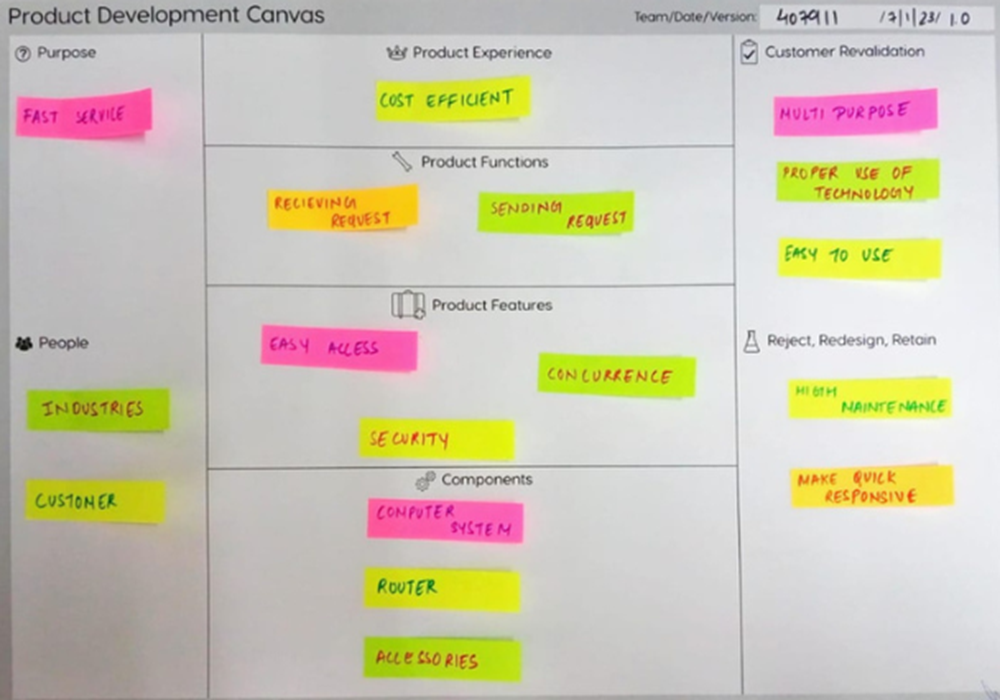 Product Development Canvas
Team/Date/Version: 407911 17/1/23/ 1.0
Purpose
FAST SERVICE
People
INDUSTRIES
CUSTOMER
Product Experience
COST EFFICIENT
Product Functions
RECIEVING
REQUEST
SENDING
REQUEST
Product Features
EASY ACCESS
CONCURRENCE
SECURITY
Components
COMPUTER
SYSTEM
ROUTER
ACCESSORIES
Customer Revalidation
MULTI PURPOSE
PROPER USE OF
TECHNOLOGY
EASY TO USE
Reject, Redesign, Retain
HIGH
MAINTENANCE
MAKE QUICK
RESPONSIVE